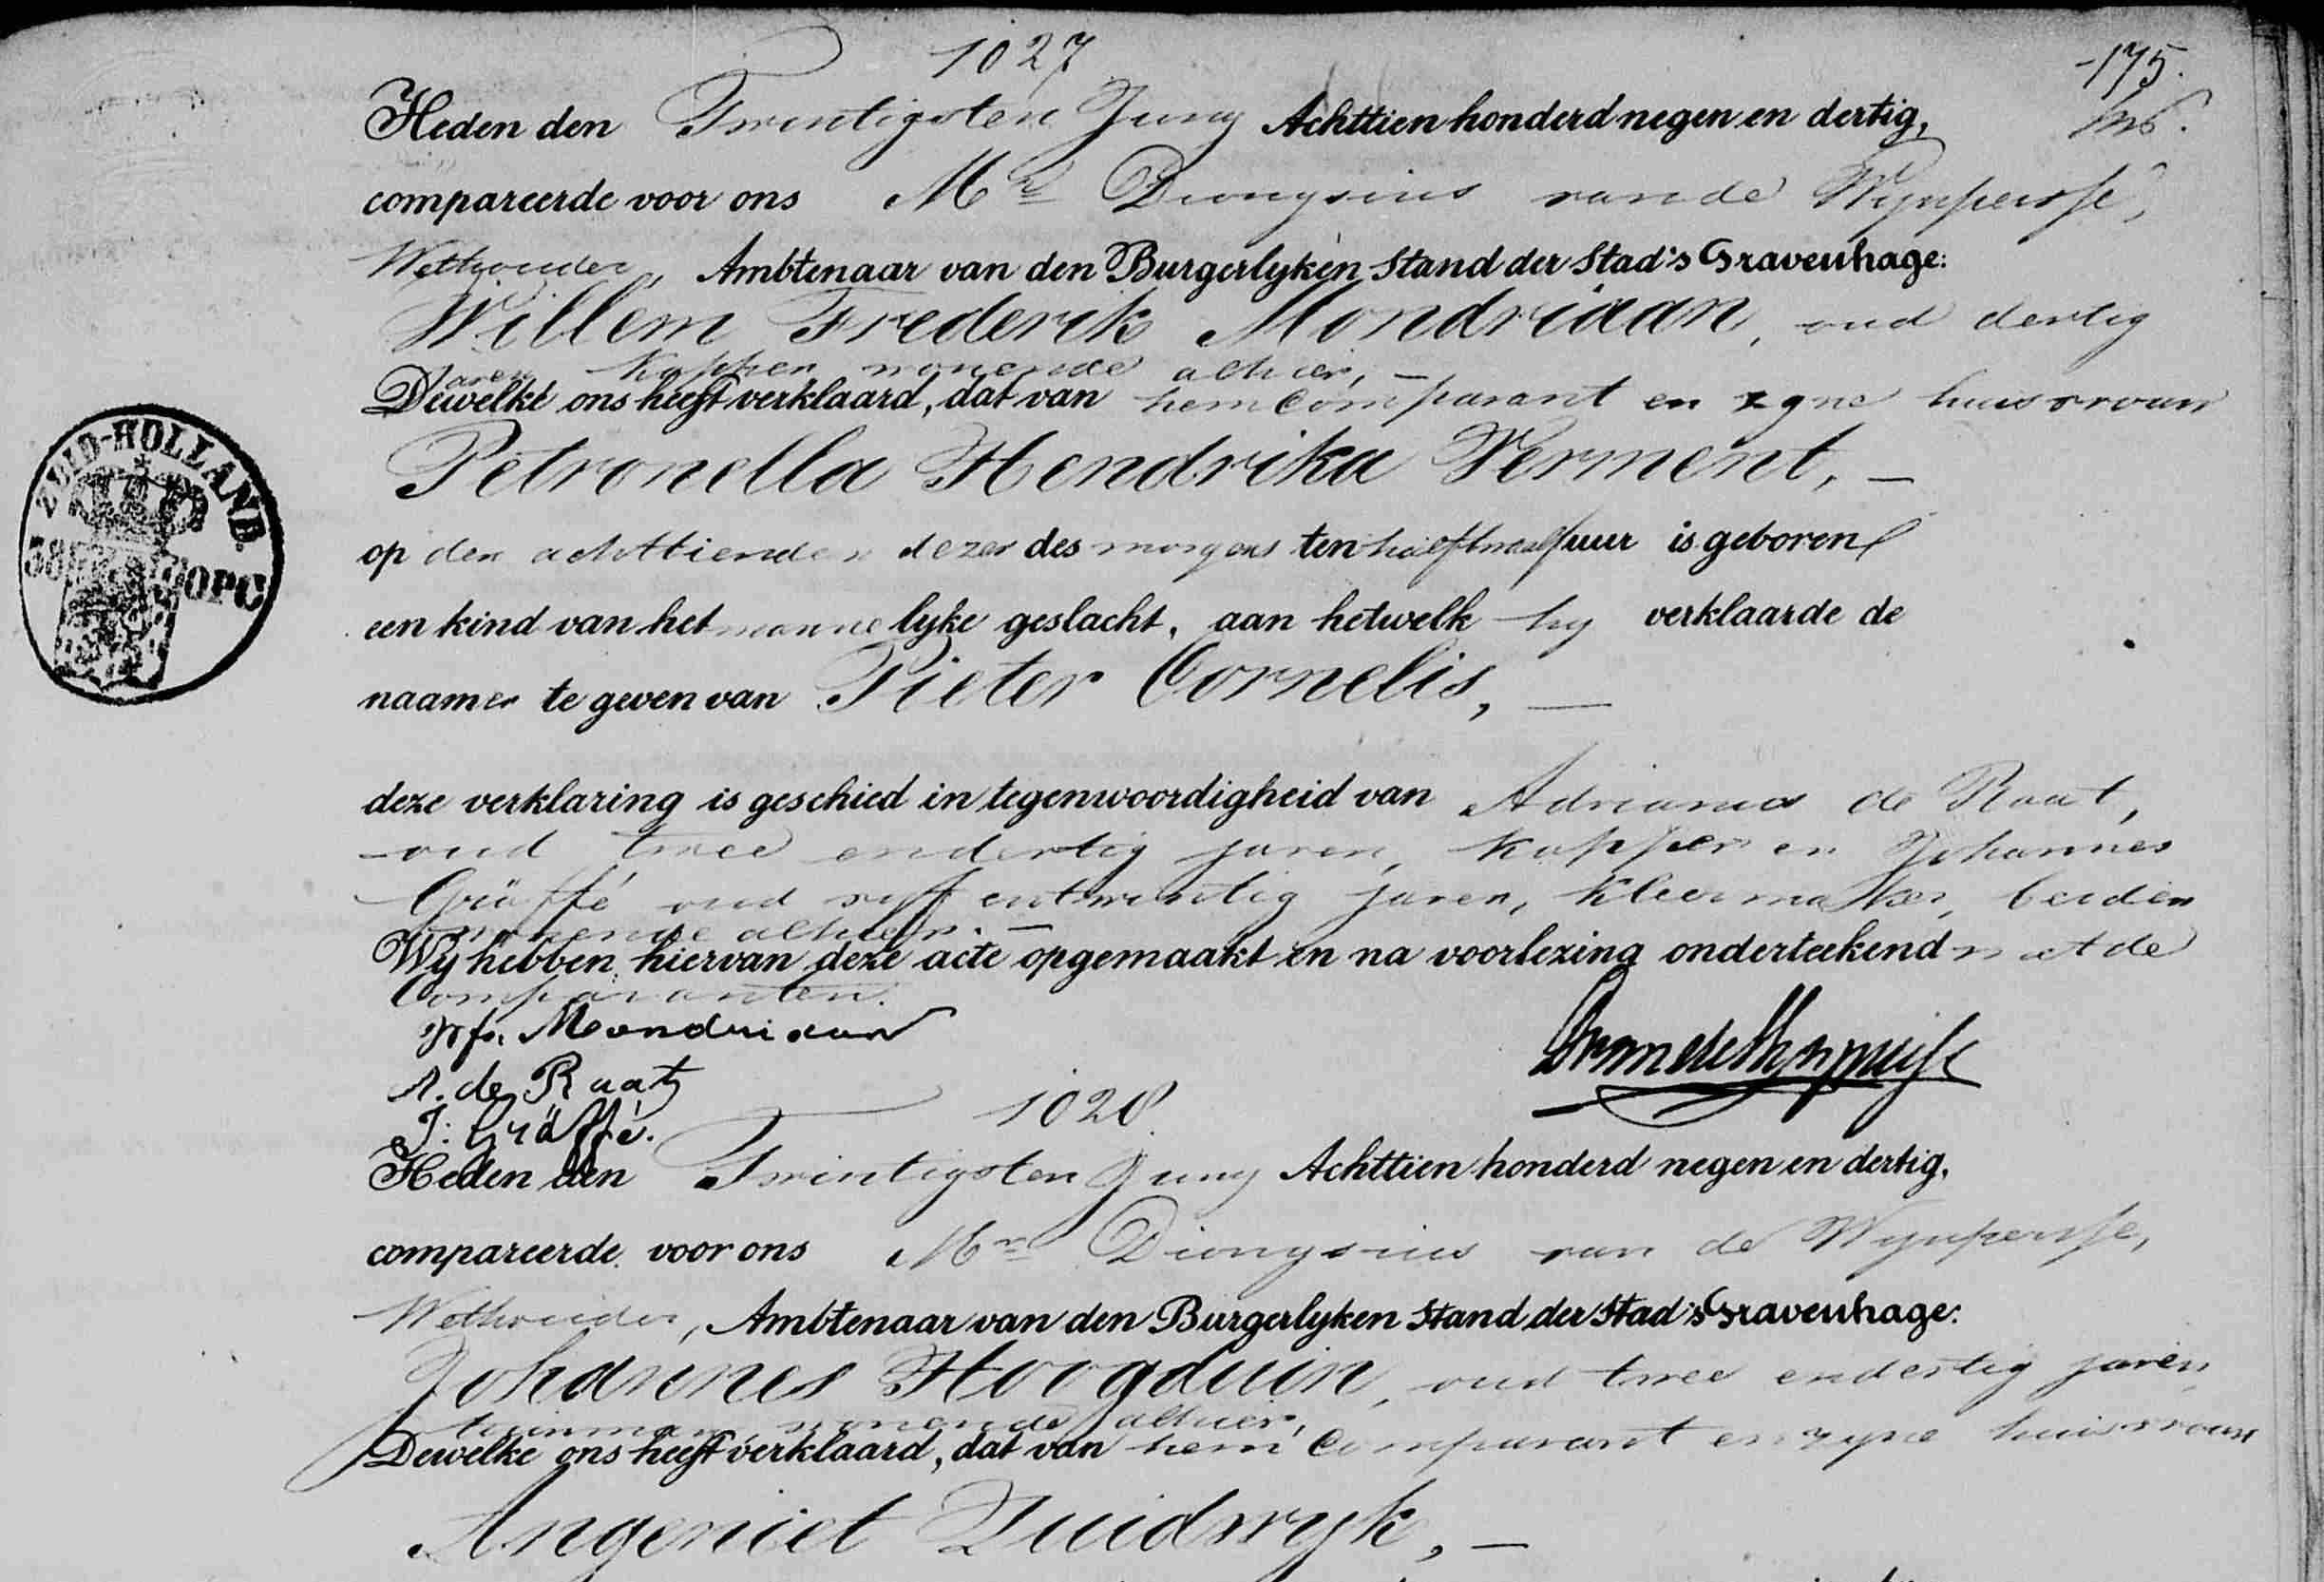 1027
175.
Heden den Twintigsten Juny Achttien honderd negen en dertig,
compareerde voor ons Mr Dionysius van de Wynpersse,
Wethouder, Ambtenaar van den Burgerlyken Stand der Stad 's Gravenhage:
Willem Frederik Mondriaan, oud dertig
Jaren Kapper wonende alhier, —
Dewelke ons heeft verklaard, dat van hem Comparant en zyne huisvrouw
Petronella Hendrika Verment, —
op den achttienden dezer des morgens ten half twaalf uur is geboren
een kind van het mannelyke geslacht, aan hetwelk hy verklaarde de
naamen te geven van Pieter Cornelis, —
deze verklaring is geschied in tegenwoordigheid van Adrianus de Raat,
oud twee en dertig jaren, Kapper en Johannes
Gräffé oud vyf en twintig jaren, Kleermaker, beiden
wonende alhier. —
Wy hebben hiervan deze acte opgemaakt en na voorlezing onderteekend met de
Comparanten.
W f. Mondriaan
A. de Raat
J: Gräffé.
ZUID-HOLLAND.
38 OPC
1028
Heden den Twintigsten Juny Achttien honderd negen en dertig,
compareerde voor ons Mr Dionysius van de Wynpersse,
Wethouder, Ambtenaar van den Burgerlyken Stand der Stad 's Gravenhage:
Johannes Hoogduin, oud twee en dertig jaren
tuinman, wonende alhier,
Dewelke ons heeft verklaard, dat van hem Comparant en zyne huisvrouw
Angeniet Zuidwyk, —